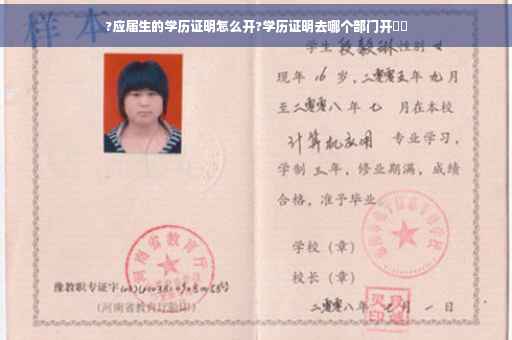 ?应届生的学历证明怎么开?学历证明去哪个部门开
样本
学生段毅琳性别女
现年16岁,二零零五年九月
至二零零八年七月在本校
计算机应用 专业学习,
学制三年,修业期满,成绩
合格,准予毕业
学校(章)
校长(章)
二零零八年七月一日
河南省教育厅
豫教职专证字
(河南省教育厅验印)